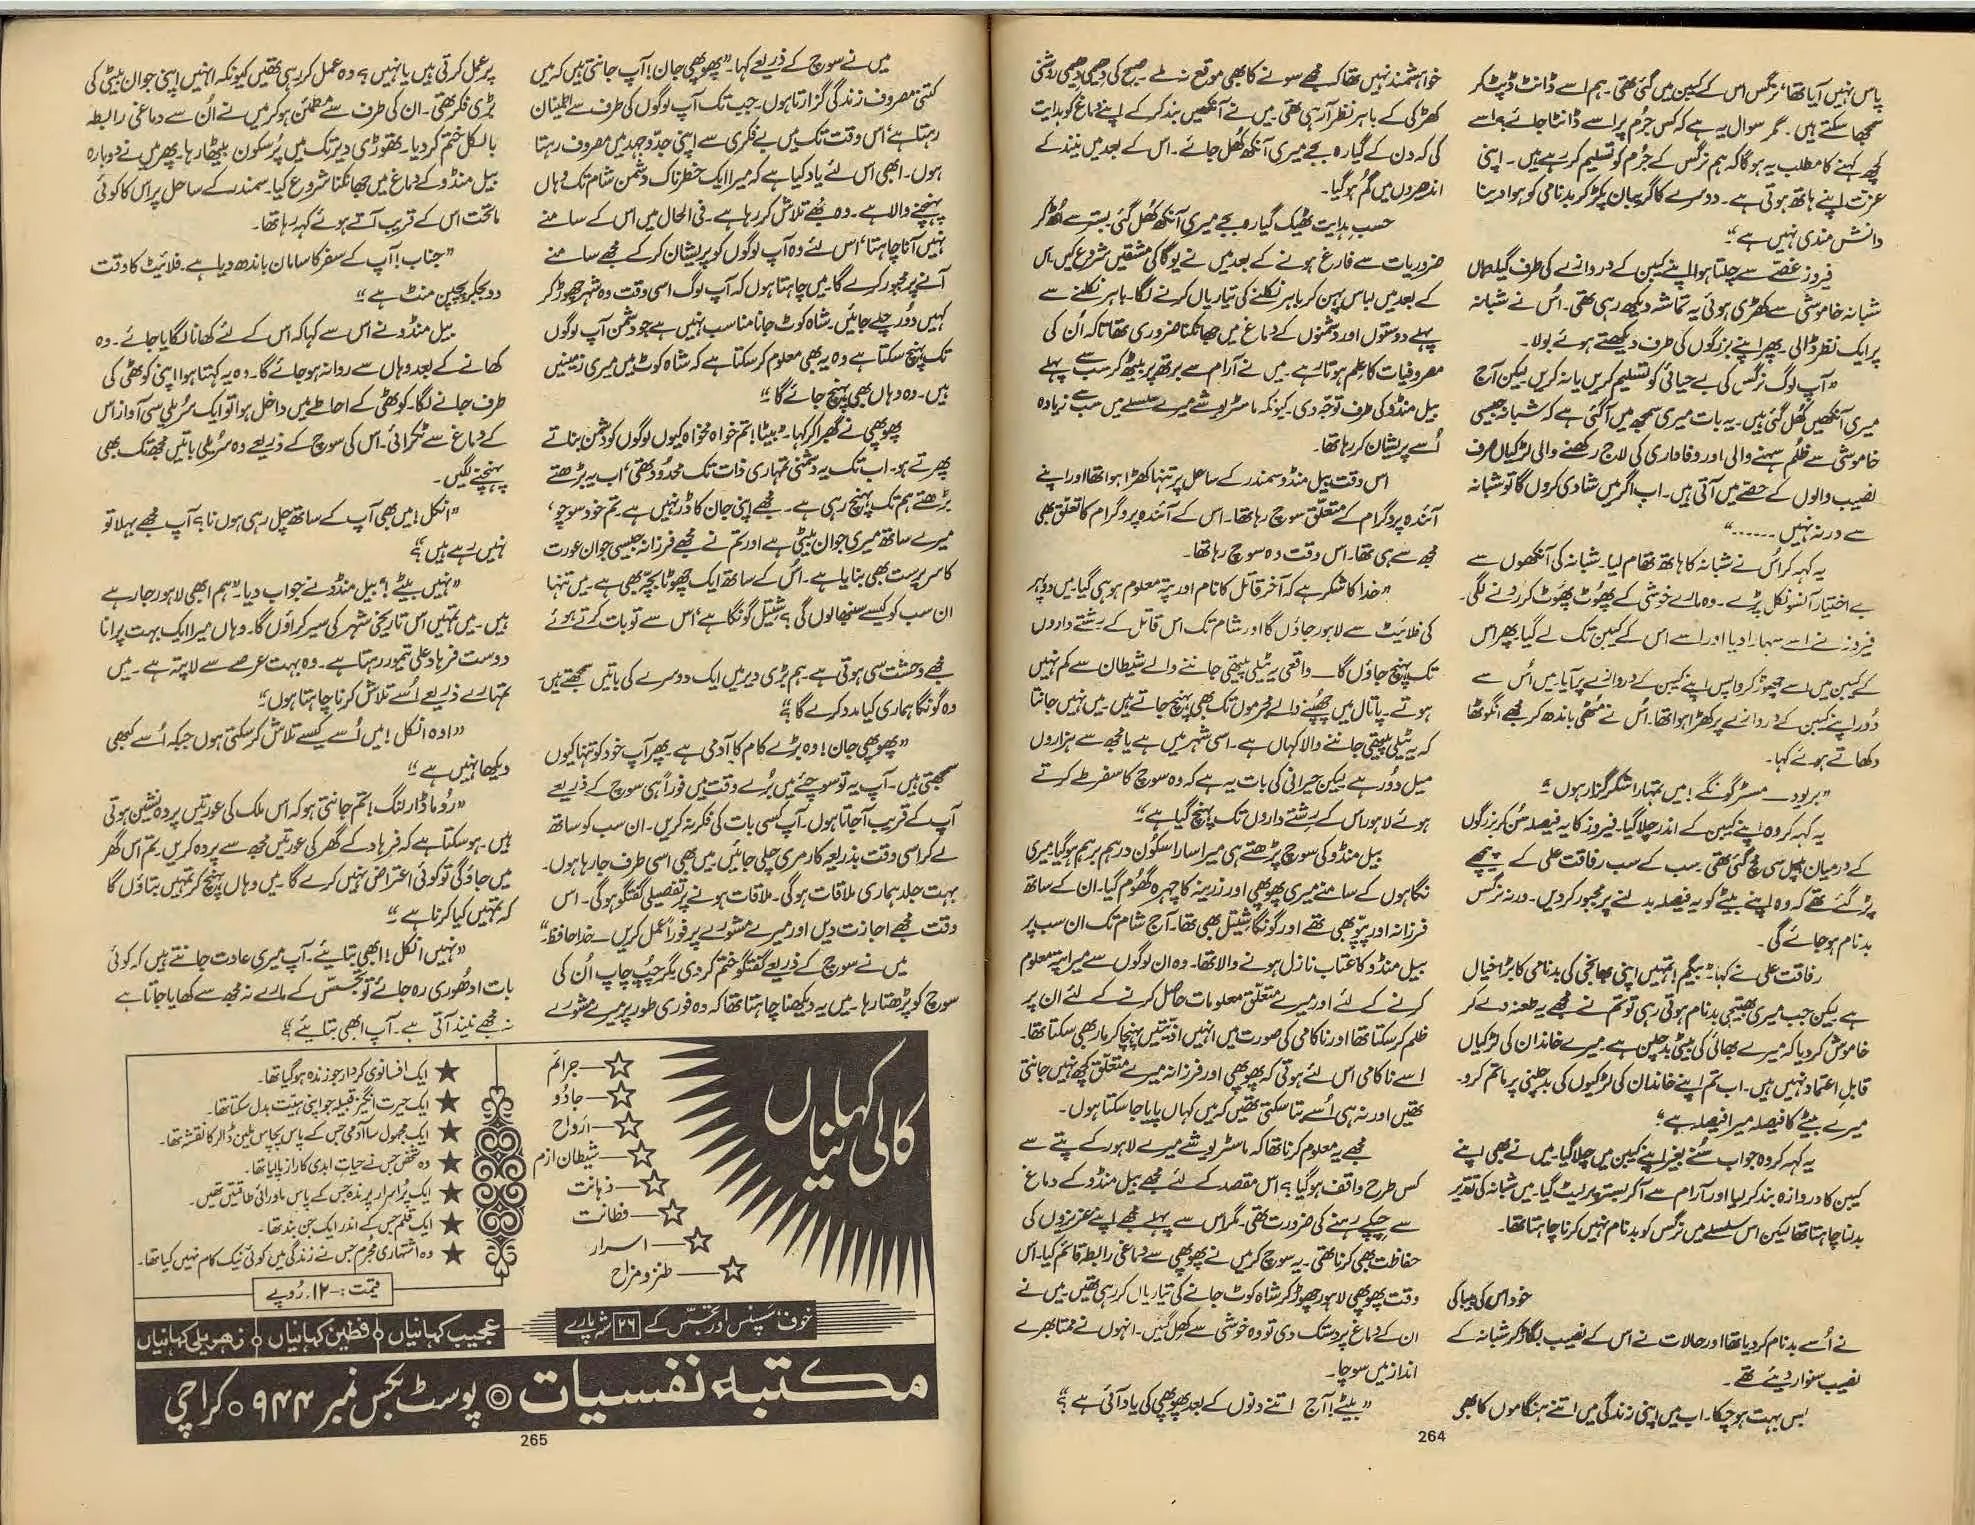 پاس نہیں آیا تھا، نرگس اس کے کیبن میں گئی تھی۔ ہم اسے ڈانٹ ڈپٹ کر
سمجھا سکتے ہیں۔ مگر سوال یہ ہے کہ کس جرم پر اسے ڈانٹا جائے، اسے
کچھ کہنے کا مطلب یہ ہوگا کہ ہم نرگس کے جرم کو تسلیم کر رہے ہیں۔ اپنی
عزت اپنے ہاتھ ہوتی ہے۔ دوسرے کا گریبان پکڑ کر بدنامی کو ہوا دینا
دانش مندی نہیں ہے"
فیروز غصے سے چلتا ہوا اپنے کیبن کے دروازے کی طرف گیا جہاں
شبانہ خاموشی سے کھڑی ہوئی یہ تماشہ دیکھ رہی تھی۔ اُس نے شبانہ
پر ایک نظر ڈالی۔ پھر اپنے بزرگوں کی طرف دیکھتے ہوئے بولا۔
"آپ لوگ نرگس کی بے حیائی کو تسلیم کریں یا نہ کریں لیکن آج
میری آنکھیں کھل گئی ہیں۔ یہ بات میری سمجھ میں آگئی ہے کہ شبانہ جیسی
خاموشی سے ظلم سہنے والی اور وفاداری کی لاج رکھنے والی لڑکیاں صرف
نصیب والوں کے حصے میں آتی ہیں۔ اب اگر میں شادی کروں گا تو شبانہ
سے ورنہ نہیں ......"
یہ کہہ کر اُس نے شبانہ کا ہاتھ تھام لیا۔ شبانہ کی آنکھوں سے
بے اختیار آنسو نکل پڑے۔ وہ مارے خوشی کے پھوٹ پھوٹ کر رونے لگی۔
فیروز نے اسے سہارا دیا اور اسے اس کے کیبن تک لے گیا۔ پھر اس
کے کیبن میں اسے چھوڑ کر واپس اپنے کیبن کے دروازے پر آیا۔ میں اُس سے
دُور اپنے کیبن کے دروازے پر کھڑا ہوا تھا۔ اُس نے مٹھی باندھ کر مجھے انگوٹھا
دکھاتے ہوئے کہا۔
"برادر — مسٹر گونگے! میں تمہارا شکر گزار ہوں"
یہ کہہ کر وہ اپنے کیبن کے اندر چلا گیا۔ فیروز کا یہ فیصلہ سُن کر بزرگوں
کے درمیان ہلچل سی مچ گئی تھی۔ سب کے سب رفاقت علی کے پیچھے
پڑ گئے تھے کہ وہ اپنے بیٹے کو یہ فیصلہ بدلنے پر مجبور کر دیں۔ ورنہ نرگس
بدنام ہو جائے گی۔
رفاقت علی نے کہا۔ "بیگم! تمہیں اپنی بھانجی کی بدنامی کا بڑا خیال
ہے لیکن جب میری بھتیجی بدنام ہوتی رہی تو تم نے مجھے یہ طعنہ دے کر
خاموش کر دیا کہ میرے بھائی کی بیٹی بدچلن ہے۔ میرے خاندان کی لڑکیاں
قابلِ اعتماد نہیں ہیں۔ اب تم اپنے خاندان کی لڑکیوں کی بدچلنی پر ماتم کرو۔
میرے بیٹے کا فیصلہ میرا فیصلہ ہے"
یہ کہہ کر وہ جواب سُنے بغیر اپنے کیبن میں چلا گیا۔ میں نے بھی اپنے
کیبن کا دروازہ بند کر لیا اور آرام سے آکر بستر پر لیٹ گیا۔ میں شبانہ کی تقدیر
بدلنا چاہتا تھا لیکن اس سلسلے میں نرگس کو بدنام نہیں کرنا چاہتا تھا۔
خود اس کی بیباکی
نے اُسے بدنام کر دیا تھا اور حالات نے اس کے نصیب بگاڑ کر شبانہ کے
نصیب سنوار دیئے تھے۔
بس بہت ہو چکا۔ اب میں اپنی زندگی میں اتنے ہنگاموں کا بھی
خواہشمند نہیں تھا کہ مجھے سونے کا بھی موقع نہ ملے۔ صبح کی دھیمی دھیمی روشنی
کھڑکی کے باہر نظر آرہی تھی۔ میں نے آنکھیں بند کر کے اپنے دماغ کو ہدایت
کی کہ دن کے گیارہ بجے میری آنکھ کُھل جائے۔ اس کے بعد میں نیند کے
اندھیروں میں گم ہوگیا۔
حسبِ ہدایت ٹھیک گیارہ بجے میری آنکھ کُھل گئی۔ بستر سے اُٹھ کر
ضروریات سے فارغ ہونے کے بعد میں نے یوگا کی مشقیں شروع کیں۔ اس
کے بعد میں لباس پہن کر باہر نکلنے کی تیاریاں کرنے لگا۔ باہر نکلنے سے
پہلے دوستوں اور دشمنوں کے دماغ میں جھانکنا ضروری تھا تاکہ اُن کی
مصروفیات کا علم ہوتا رہے۔ میں نے آرام سے برتھ پر بیٹھ کر سب سے پہلے
بیل منڈو کی طرف توجہ دی۔ کیونکہ ماسٹر یوشے میرے سلسلے میں سب سے زیادہ
اُسے پریشان کر رہا تھا۔
اس وقت بیل منڈو سمندر کے ساحل پر تنہا کھڑا ہوا تھا اور اپنے
آئندہ پروگرام کے متعلق سوچ رہا تھا۔ اس کے آئندہ پروگرام کا تعلق بھی
مجھ سے ہی تھا۔ اس وقت وہ سوچ رہا تھا۔
"خدا کا شکر ہے کہ آخر قاتل کا نام اور پتہ معلوم ہو ہی گیا۔ میں دوپہر
کی فلائیٹ سے لاہور جاؤں گا اور شام تک اس قاتل کے رشتے داروں
تک پہنچ جاؤں گا — واقعی یہ ٹیلی پیتھی جاننے والے شیطان سے کم نہیں
ہوتے۔ پاتال میں چھپنے والے مجرموں تک بھی پہنچ جاتے ہیں۔ میں نہیں جانتا
کہ یہ ٹیلی پیتھی جاننے والا کہاں ہے۔ اسی شہر میں ہے یا مجھ سے ہزاروں
میل دُور ہے لیکن حیرانی کی بات یہ ہے کہ وہ سوچ کا سفر طے کرتے
ہوئے لاہور اس کے رشتے داروں تک پہنچ گیا ہے"
بیل منڈو کی سوچ پڑھتے ہی میرا سارا سکون درہم برہم ہوگیا۔ میری
نگاہوں کے سامنے میری پھوپھی اور زرینہ کا چہرہ گھوم گیا۔ ان کے ساتھ
فرزانہ اور پپو بھی تھے اور گونگا شیتل بھی تھا۔ آج شام تک ان سب پر
بیل منڈو کا عتاب نازل ہونے والا تھا۔ وہ ان لوگوں سے میرا پتہ معلوم
کرنے کے لئے اور میرے متعلق معلومات حاصل کرنے کے لئے ان پر
ظلم کر سکتا تھا اور ناکامی کی صورت میں انہیں اذیتیں پہنچا کر مار بھی سکتا تھا۔
اسے ناکامی اس لئے ہوتی کہ پھوپھی اور فرزانہ میرے متعلق کچھ نہیں جانتی
تھیں اور نہ ہی اُسے بتا سکتی تھیں کہ میں کہاں پایا جا سکتا ہوں۔
مجھے یہ معلوم کرنا تھا کہ ماسٹر یوشے میرے لاہور کے پتے سے
کس طرح واقف ہوگیا؟ اس مقصد کے لئے مجھے بیل منڈو کے دماغ
سے چپکے رہنے کی ضرورت تھی۔ مگر اس سے پہلے مجھے اپنے عزیزوں کی
حفاظت بھی کرنا تھی۔ یہ سوچ کر میں نے پھوپھی سے دماغی رابطہ قائم کیا۔ اس
وقت پھوپھی لاہور چھوڑ کر شاہ کوٹ جانے کی تیاریاں کر رہی تھیں میں نے
ان کے دماغ پر دستک دی تو وہ خوشی سے کِھل گئیں۔ انہوں نے ممتا بھرے
انداز میں سوچا۔
"بیٹے! آج اتنے دنوں کے بعد پھوپھی کی یاد آئی ہے؟"
264
میں نے سوچ کے ذریعے کہا۔ "پھوپھی جان! آپ جانتی ہیں کہ میں
کتنی مصروف زندگی گزارتا ہوں۔ جب تک آپ لوگوں کی طرف سے اطمینان
رہتا ہے، اس وقت تک میں بے فکری سے اپنی جدوجہد میں مصروف رہتا
ہوں۔ ابھی اس لئے یاد کیا ہے کہ میرا ایک خطرناک دشمن شام تک وہاں
پہنچنے والا ہے۔ وہ مجھے تلاش کر رہا ہے۔ فی الحال میں اس کے سامنے
نہیں آنا چاہتا، اس لئے وہ آپ لوگوں کو پریشان کر کے مجھے سامنے
آنے پر مجبور کرے گا۔ میں چاہتا ہوں کہ آپ لوگ اسی وقت وہ شہر چھوڑ کر
کہیں دُور چلے جائیں۔ شاہ کوٹ جانا مناسب نہیں ہے جو دشمن آپ لوگوں
تک پہنچ سکتا ہے وہ یہ بھی معلوم کر سکتا ہے کہ شاہ کوٹ میں میری زمینیں
ہیں۔ وہ وہاں بھی پہنچ جائے گا"
پھوپھی نے گھبرا کر کہا۔ "بیٹا! تم خواہ مخواہ کیوں لوگوں کو دشمن بناتے
پھرتے ہو۔ اب تک یہ دشمنی تمہاری ذات تک محدود تھی، اب یہ بڑھتے
بڑھتے ہم تک پہنچ رہی ہے۔ مجھے اپنی جان کا ڈر نہیں ہے۔ تم خود سوچو،
میرے ساتھ میری جوان بیٹی ہے اور تم نے مجھے فرزانہ جیسی جوان عورت
کا سرپرست بھی بنایا ہے۔ اُس کے ساتھ ایک چھوٹا بچہ بھی ہے۔ میں تنہا
ان سب کو کیسے سنبھالوں گی؟ شیتل گونگا ہے، اس سے تو بات کرتے ہوئے
مجھے وحشت سی ہوتی ہے۔ ہم بڑی دیر میں ایک دوسرے کی باتیں سمجھتے ہیں۔
وہ گونگا ہماری کیا مدد کرے گا؟"
"پھوپھی جان! وہ بڑے کام کا آدمی ہے۔ پھر آپ خود کو تنہا کیوں
سمجھتی ہیں۔ آپ یہ تو سوچئے میں بُرے وقت میں فوراً ہی سوچ کے ذریعے
آپ کے قریب آجاتا ہوں۔ آپ کسی بات کی فکر نہ کریں۔ ان سب کو ساتھ
لے کر اسی وقت بذریعہ کار مری چلی جائیں۔ میں بھی اسی طرف جا رہا ہوں۔
بہت جلد ہماری ملاقات ہوگی۔ ملاقات ہونے پر تفصیلی گفتگو ہوگی۔ اس
وقت مجھے اجازت دیں اور میرے مشورے پر فوراً عمل کریں۔ خدا حافظ۔"
میں نے سوچ کے ذریعے گفتگو ختم کر دی مگر چُپ چاپ اُن کی
سوچ کو پڑھتا رہا۔ میں یہ دیکھنا چاہتا تھا کہ وہ فوری طور پر میرے مشورے
پر عمل کرتی ہیں یا نہیں؟ وہ عمل کر رہی تھیں کیونکہ انہیں اپنی جوان بیٹی کی
بڑی فکر تھی۔ ان کی طرف سے مطمئن ہو کر میں نے اُن سے دماغی رابطہ
بالکل ختم کر دیا۔ تھوڑی دیر تک میں پُرسکون بیٹھا رہا۔ پھر میں نے دوبارہ
بیل منڈو کے دماغ میں جھانکنا شروع کیا۔ سمندر کے ساحل پر اس کا کوئی
ماتحت اس کے قریب آتے ہوئے کہہ رہا تھا۔
"جناب! آپ کے سفر کا سامان باندھ دیا ہے۔ فلائیٹ کا وقت
دو بجکر پچپن منٹ ہے"
بیل منڈو نے اس سے کہا کہ اس کے لئے کھانا لگایا جائے۔ وہ
کھانے کے بعد وہاں سے روانہ ہو جائے گا۔ وہ یہ کہتا ہوا اپنی کوٹھی کی
طرف جانے لگا۔ کوٹھی کے احاطے میں داخل ہوا تو ایک سُریلی سی آواز اس
کے دماغ سے ٹکرائی۔ اس کی سوچ کے ذریعے وہ سُریلی باتیں مجھ تک بھی
پہنچنے لگیں۔
"انکل! میں بھی آپ کے ساتھ چل رہی ہوں نا؟ آپ مجھے بہلا تو
نہیں رہے ہیں؟"
"نہیں بیٹے!" بیل منڈو نے جواب دیا۔ "ہم ابھی لاہور جا رہے
ہیں۔ میں تمہیں اس تاریخی شہر کی سیر کراؤں گا۔ وہاں میرا ایک بہت پرانا
دوست فرہاد علی تیمور رہتا ہے۔ وہ بہت عرصے سے لاپتہ ہے۔ میں
تمہارے ذریعے اُسے تلاش کرنا چاہتا ہوں"
"اوہ انکل! میں اُسے کیسے تلاش کر سکتی ہوں جبکہ اُسے کبھی
دیکھا نہیں ہے"
"روما ڈارلنگ! تم جانتی ہو کہ اس ملک کی عورتیں پردہ نشین ہوتی
ہیں۔ ہو سکتا ہے کہ فرہاد کے گھر کی عورتیں مجھ سے پردہ کریں۔ تم اس گھر
میں جاؤ گی تو کوئی اعتراض نہیں کرے گا۔ میں وہاں پہنچ کر تمہیں بتاؤں گا
کہ تمہیں کیا کرنا ہے"
"نہیں انکل! ابھی بتائیے۔ آپ میری عادت جانتے ہیں کہ کوئی
بات ادھوری رہ جائے تو تجسس کے مارے نہ مجھ سے کھایا جاتا ہے
نہ مجھے نیند آتی ہے۔ آپ ابھی بتائیے؟"
کالی کہانیاں
جرائم
جادُو
ارواح
شیطان ازم
ذہانت
فطانت
اسرار
طنز و مزاح
ایک افسانوی کردار جو زندہ ہوگیا تھا۔
ایک حیرت انگیز قبیلہ جو اپنی ہیئت بدل سکتا تھا۔
ایک مجہول سا آدمی جس کے پاس پچاس ملین ڈالر کا نقشہ تھا۔
وہ شخص جس نے حیاتِ ابدی کا راز پالیا تھا۔
ایک پُراسرار پرندہ جس کے پاس ماورائی طاقتیں تھیں۔
ایک قلم جس کے اندر ایک جن بند تھا۔
وہ اشتہاری مجرم جس نے زندگی میں کوئی نیک کام نہیں کیا تھا۔
قیمت:- ۱۲/ رُوپے
خوف، سسپنس اور تجسس کے ۲۶ شہ پارے
عجیب کہانیاں ٥ فطین کہانیاں ٥ زہریلی کہانیاں
مکتبہ نفسیات ◎ پوسٹ بکس نمبر ۹۴۴ ٥ کراچی
265